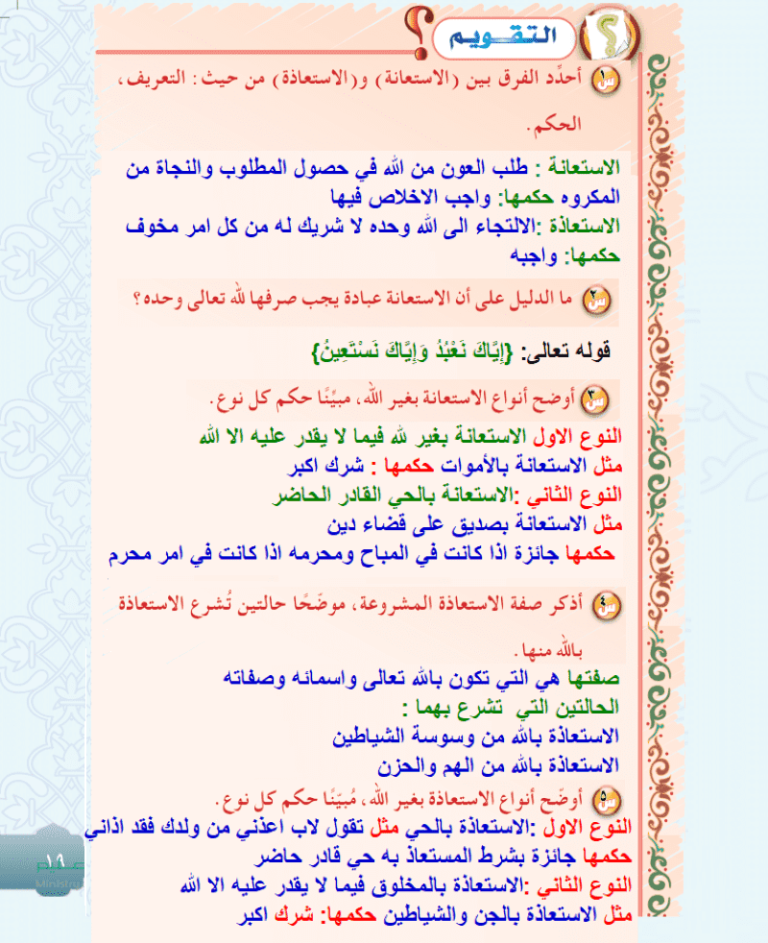 التقويم
س١ أحدِّد الفرق بين (الاستعانة) و(الاستعاذة) من حيث: التعريف،
الحكم.
الاستعانة : طلب العون من الله في حصول المطلوب والنجاة من
المكروه حكمها: واجب الاخلاص فيها
الاستعاذة :الالتجاء الى الله وحده لا شريك له من كل امر مخوف
حكمها: واجبه
س٢ ما الدليل على أن الاستعانة عبادة يجب صرفها لله تعالى وحده؟
قوله تعالى: {إِيَّاكَ نَعْبُدُ وَإِيَّاكَ نَسْتَعِينُ}
س٣ أوضح أنواع الاستعانة بغير الله، مبيِّنًا حكم كل نوع.
النوع الاول الاستعانة بغير لله فيما لا يقدر عليه الا الله
مثل الاستعانة بالأموات حكمها : شرك اكبر
النوع الثاني :الاستعانة بالحي القادر الحاضر
مثل الاستعانة بصديق على قضاء دين
حكمها جائزة اذا كانت في المباح ومحرمه اذا كانت في امر محرم
س٤ أذكر صفة الاستعاذة المشروعة، موضّحًا حالتين تُشرع الاستعاذة
بالله منها.
صفتها هي التي تكون بالله تعالى واسمائه وصفاته
الحالتين التي تشرع بهما :
الاستعاذة بالله من وسوسة الشياطين
الاستعاذة بالله من الهم والحزن
س٥ أوضّح أنواع الاستعاذة بغير الله، مُبيّنًا حكم كل نوع.
النوع الاول :الاستعاذة بالحي مثل تقول لاب اعذني من ولدك فقد اذاني
حكمها جائزة بشرط المستعاذ به حي قادر حاضر
النوع الثاني :الاستعاذة بالمخلوق فيما لا يقدر عليه الا الله
مثل الاستعاذة بالجن والشياطين حكمها: شرك اكبر
١٩
Ministry